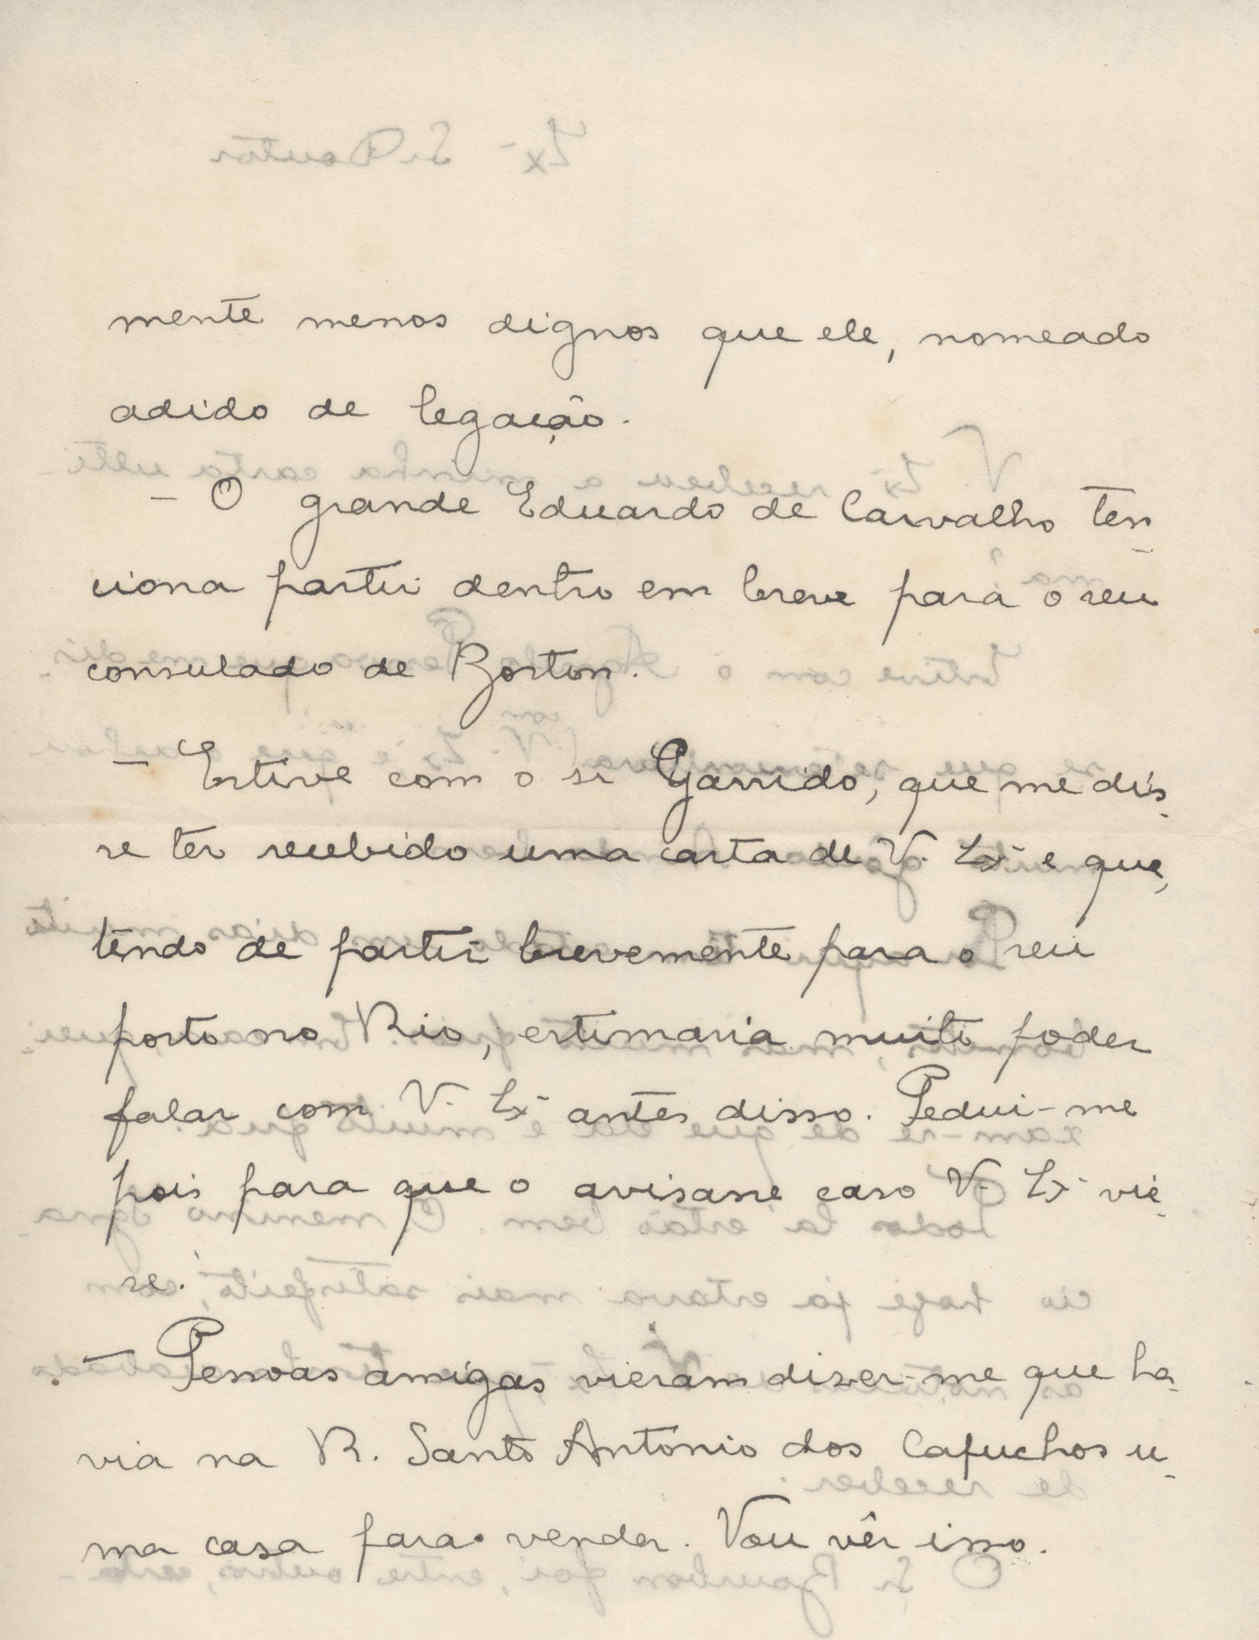 mente menos dignos que ele, nomeado
adido de legação.
- O grande Eduardo de Carvalho ten-
ciona partir dentro em breve para o seu
consulado de Boston.
- Estive com o sr Garrido, que me dis-
se ter recebido uma carta de V. Ex.ª e que,
tendo de partir brevemente para o seu
posto no Rio, estimaria muito poder
falar com V. Ex.ª antes disso. Pediu-me
pois para que o avisasse caso V. Ex.ª vies-
se.
- Pessoas amigas vieram dizer-me que ha-
via na R. Santo Antonio dos Capuchos u-
ma casa para vender. Vou vêr isso.